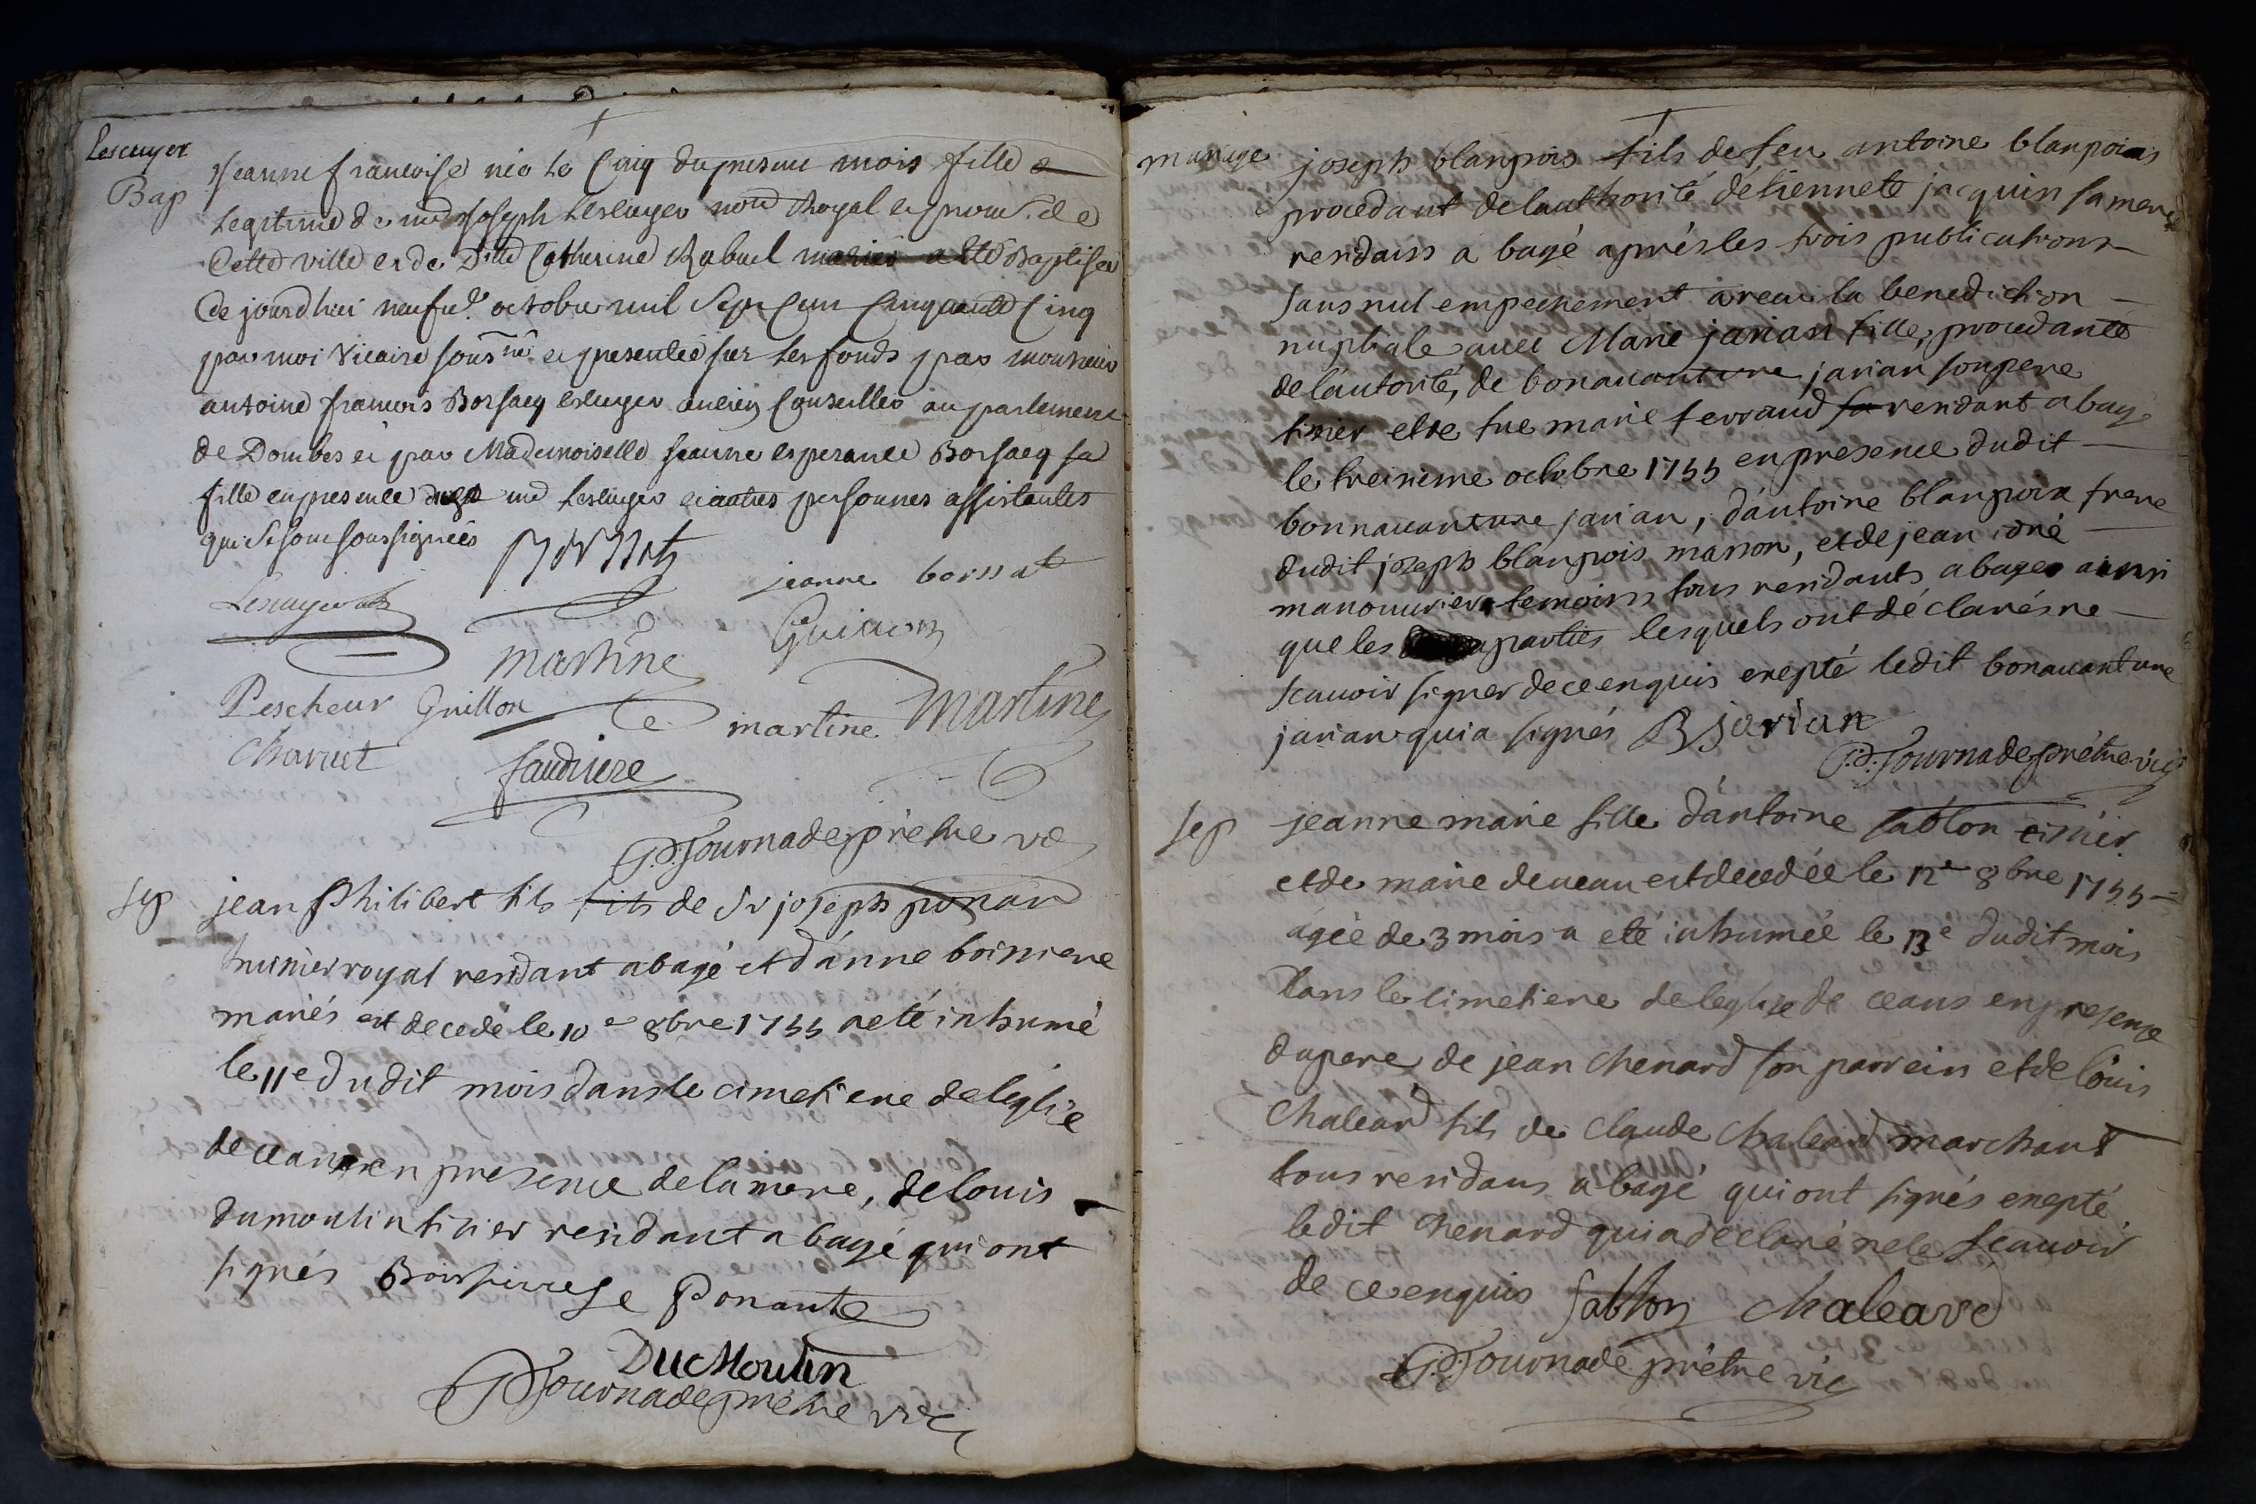 Lescuyer
Bap
Jeanne francoise née le Cinq du present mois fille
Legitime de me Joseph Lescuyer nore Royal et procr. de
Cette ville et de Dlle Catherine Rabuel mariés a été Baptisée
Ce jourd'hui neufve. octobre mil Sept Cent Cinquante Cinq
par moi Vicaire sousné et presentée sur Les fonds par monsieur
antoine francois Borsacq escuyer ancien Conseiller au parlement
de Dombes et par Mademoiselle Jeanne esperance Borsacq sa
fille en presence dudit me Lescuyer et autres personnes assistantes
qui Se sont soussignées
jeanne borssat
Lescuyer
Guillon
martine
Pescheur Guillon
martine Martine
Charvet
faudriere
P.D. Tournade prêtre vic
sep
jean Philibert fils fils de Sr joseph ponan
huissier royal residant a bagé et d'anne boissiere
mariés est decedé le 10e 8bre 1755 a eté inhumé
le 11e dudit mois dans le cimetiere de l'eglise
de ceans en presence de la mere, de louis
dumoulin tisier residant a bagé qui ont
signés Boissierese Ponante
DucMoulin
P.D. Tournade prêtre vic
mariage
joseph blanpois fils de feu antoine blanpois
procedant de lauthorité détiennete jacquin sa mere
residans a bagé aprés les trois publications
sans nul empechement a recu la benediction
nuptiale avec Marie jarian fille, procedante
de l'autorité, de bonavanture jarian son pere
tisier et de fue marie ferraud sa residant a bagé
le treisieme octobre 1755 en presence dudit
bonnavanture jarian, d'antoine blanpoix frere
dudit joseph blanpois masson, et de jean
manouvrier temoins tous residants a bagé ainsi
que les parties lesquels ont déclarés ne
scavoir signer de ce enquis exepté ledit bonavanture
jarian qui a signés B jarian
P.D. Tournade prêtre vic
sep
jeanne marie fille d'antoine sablon tisier
et de marie deveau est decedée le 12e 8bre 1755
agée de 3 mois a eté inhumée le 13e dudit mois
dans le simetiere de leglise de ceans en presence
du pere de jean chenard son parrein et de louis
Chaleard fils de Claude Chaleard marchant
tous residans a bagé qui ont signés exepté
ledit Chenard qui a déclaré ne le scavoir
de ce enquis sablon chaleard
P.D. Tournade prêtre vic